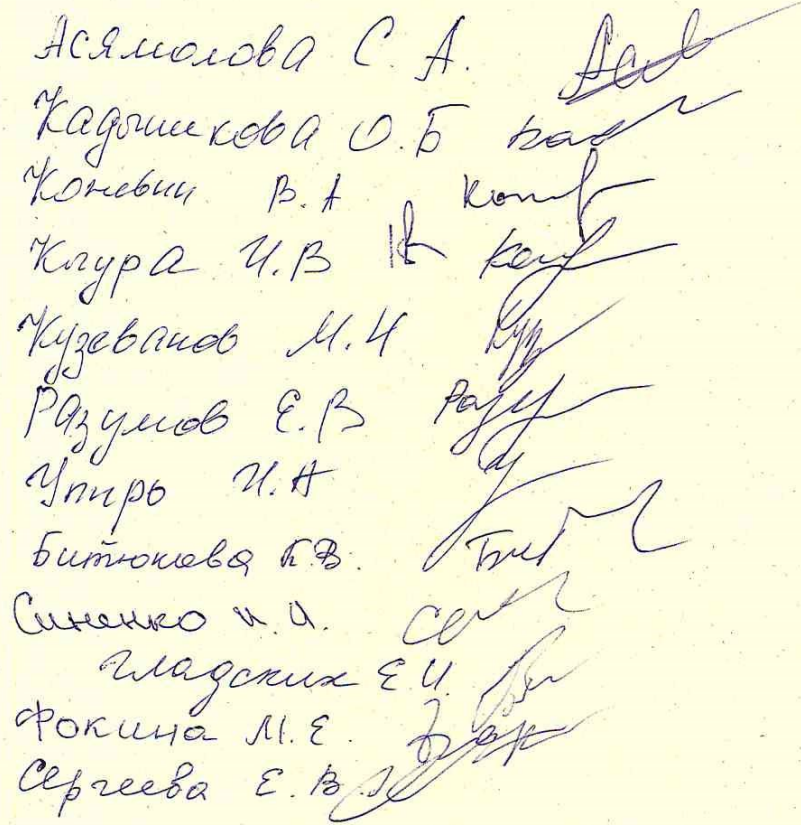 Асямолова С. А.
Кадышкова О.Б
Коневин В.А
Кцура И.В
Кузеванов М.И
Разумов Е.В
Упирь И.А
Битюкова К.В.
Синенко И.И.
Гладских Е.И.
Фокина М.Е.
Сергеева Е.В.